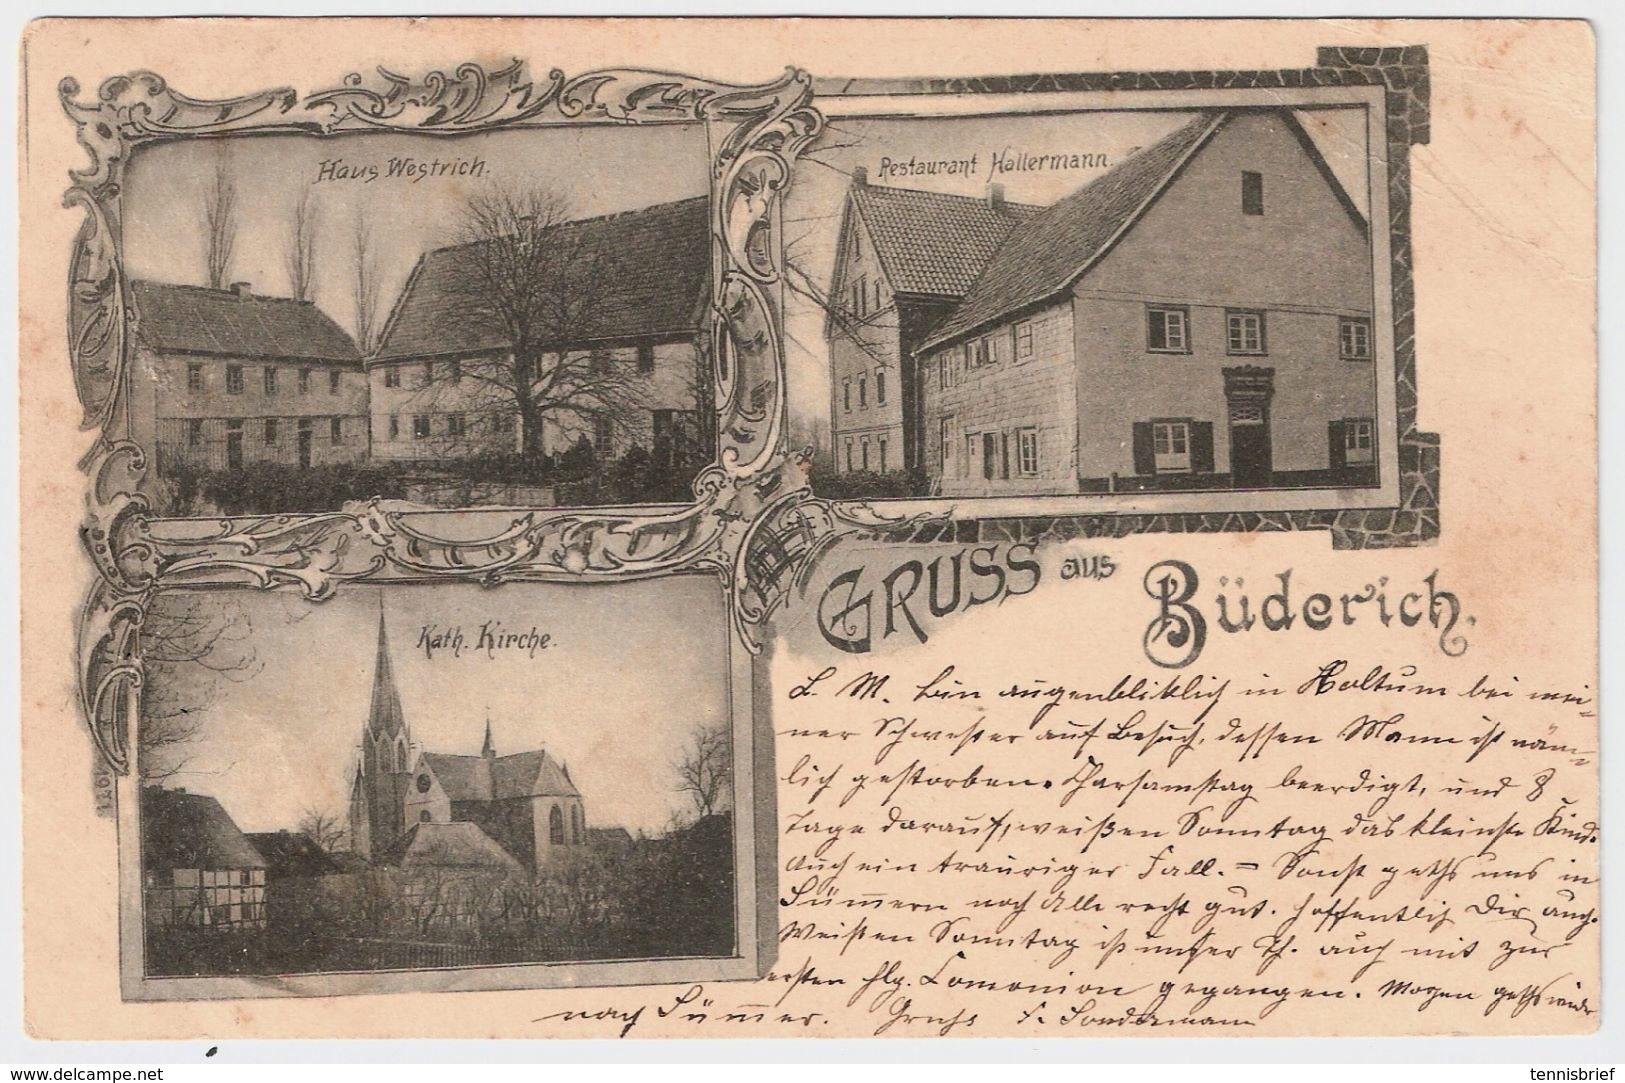 Haus Westrich.
Restaurant Hallermann.
Kath. Kirche.
GRUSS aus Büderich.
1261
L. M. bin augenblicklich in Holtum bei mei-
ner Schwester auf Besuch, dessen Mann ist näm-
lich gestorben. Charsamstag beerdigt, und 8
Tage darauf, weißen Sonntag das kleinste Kind.
Auch ein trauriger Fall. = Sonst gehts uns in
Sümmern noch Alle recht gut. Hoffentlich Dir auch.
Weißen Sonntag ist unser Th. auch mit zur
ersten hlg. Comonion gegangen. Morgen gehts wieder
nach Sümmer. Gruß F. Sondermann
www.delcampe.net
tennisbrief